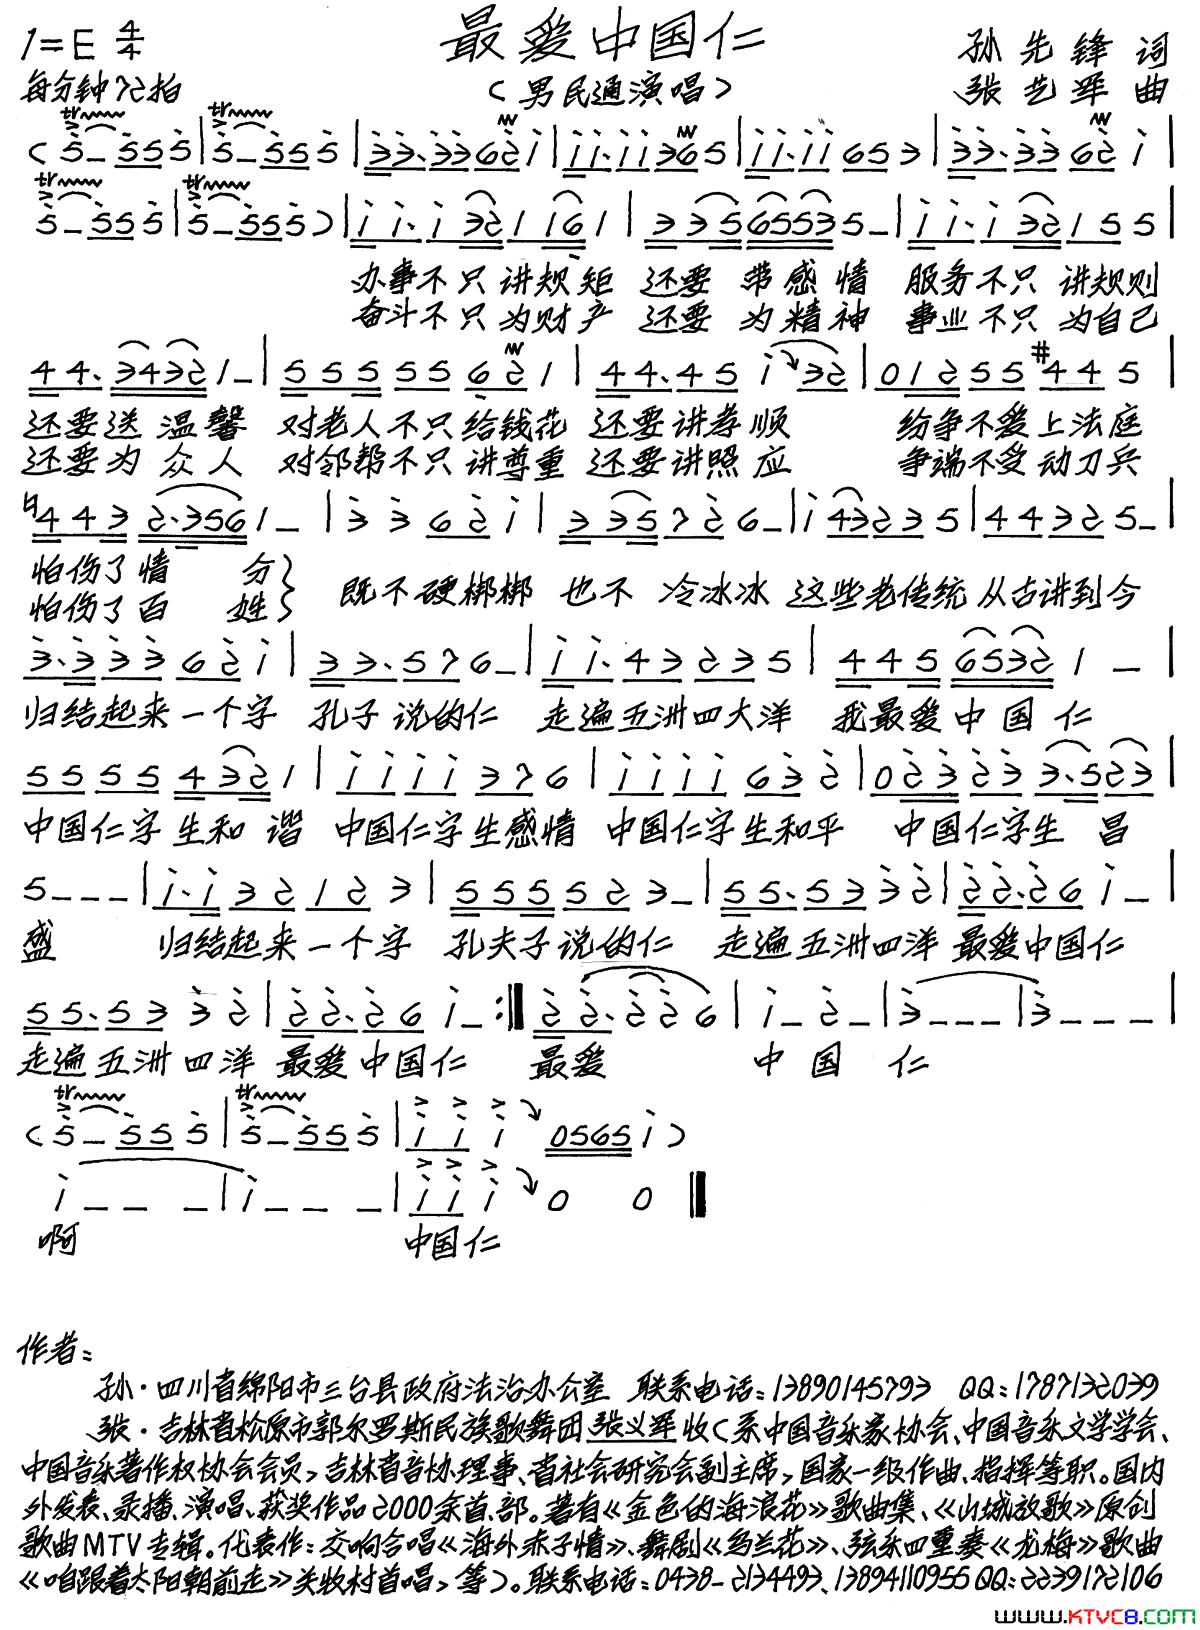 最爱中国仁
1=E 4/4
每分钟72拍
(男民通演唱)
孙先锋 词
张艺军 曲
办事不只讲规矩 还要带感情 服务不只讲规则
奋斗不只为财产 还要为精神 事业不只为自己
还要送温馨 对老人不只给钱花 还要讲孝顺 纷争不爱上法庭
还要为众人 对邻帮不只讲尊重 还要讲照应 争端不受动刀兵
怕伤了情分
怕伤了百姓
既不硬梆梆 也不冷冰冰 这些老传统 从古讲到今
归结起来一个字 孔子说的仁 走遍五洲四大洋 我最爱中国仁
中国仁字生和谐 中国仁字生感情 中国仁字生和平 中国仁字生昌
盛 归结起来一个字 孔夫子说的仁 走遍五洲四洋 最爱中国仁
走遍五洲四洋 最爱中国仁 最爱 中国仁
啊 中国仁
作者:
孙·四川省绵阳市三台县政府法治办公室 联系电话:13890145793 QQ:1787132039
张·吉林省松原市郭尔罗斯民族歌舞团张义军收(系中国音乐家协会、中国音乐文学学会、
中国音乐著作权协会会员,吉林省音协理事、省社会研究会副主席,国家一级作曲、指挥等职。国内
外发表、录播、演唱、获奖作品2000余首、部。著有《金色的海浪花》歌曲集、《山城放歌》原创
歌曲MTV专辑。代表作:交响合唱《海外赤子情》、舞剧《乌兰花》、弦乐四重奏《龙梅》歌曲
《咱跟着太阳朝前走》关牧村首唱,等)。联系电话:0438-2134493、13894110955 QQ:2239172106
www.KTVC8.com